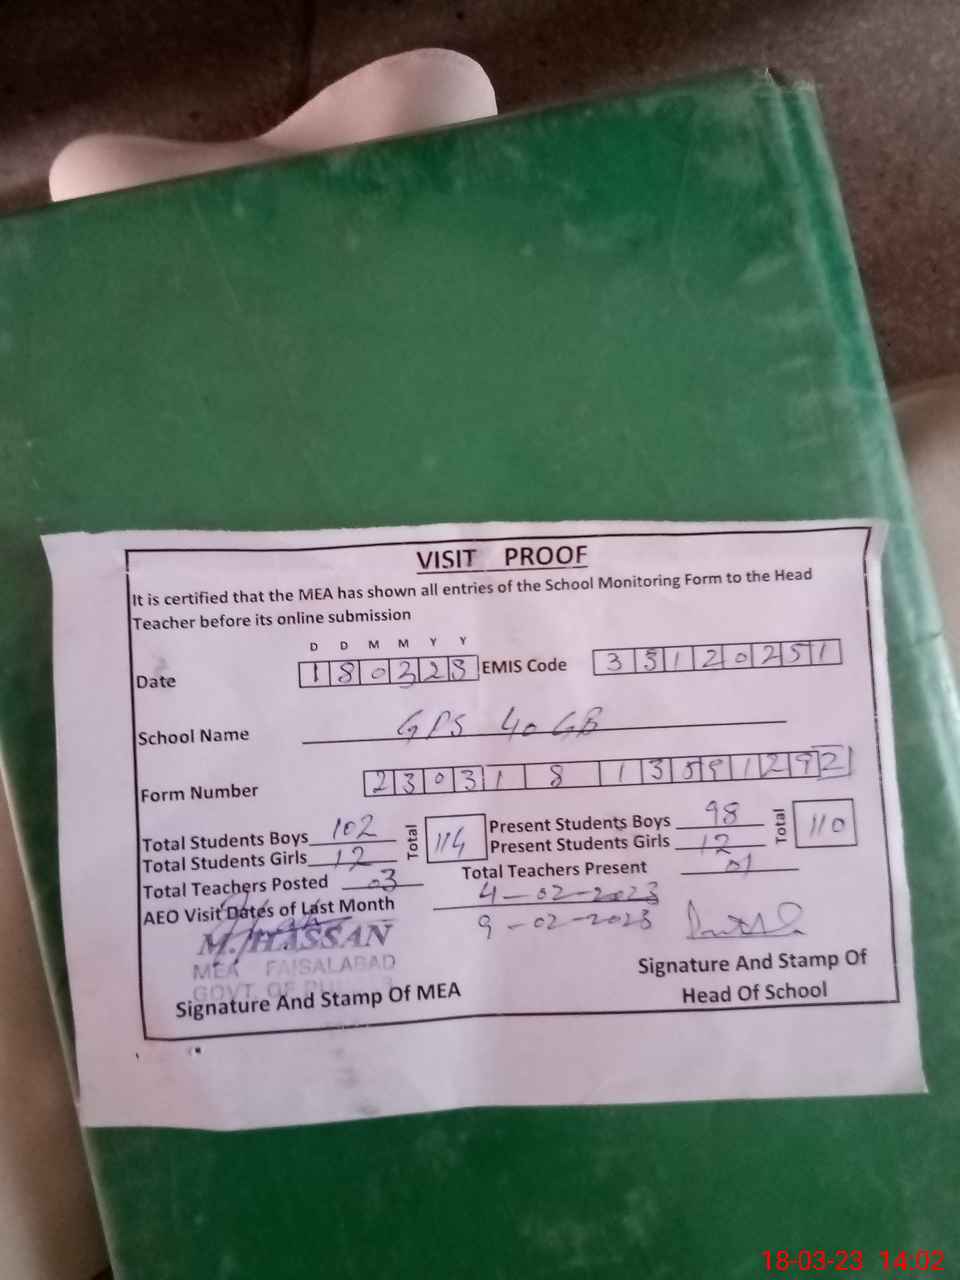 VISIT PROOF
It is certified that the MEA has shown all entries of the School Monitoring Form to the Head
Teacher before its online submission
D D M M Y Y
Date 180323 EMIS Code 33120251
School Name GPS 40 GB
Form Number
Total Students Boys 102 Total 114 Present Students Boys 98 Total 110
Total Students Girls 12 Present Students Girls 12
Total Teachers Posted 03 Total Teachers Present 01
AEO Visit Dates of Last Month 4-02-2023
9-02-2023
M. HASSAN
MEA FAISALABAD
GOVT. OF
Signature And Stamp Of MEA
Signature And Stamp Of
Head Of School
18-03-23 14:02